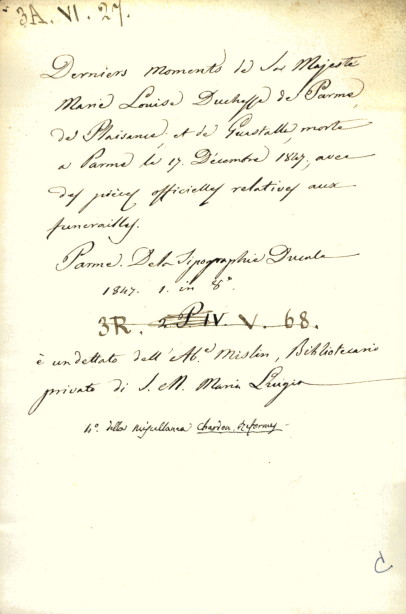 3A. VI. 27.
Derniers moments de Sa Majesté
Marie Louise Duchesse de Parme,
de Plaisance, et de Guastalle, morte
a Parme le 17. Décembre 1847, avec
des pièces officielles relatives aux
funerailles.
Parme. De la Tipographie Ducale
1847. 1. in 8°
3R. 2 P IV. V. 68.
è un dettato dell'Ab.e Mislin, Bibliotecario
privato di S. M. Maria Luigia
4°. della miscellanea
C